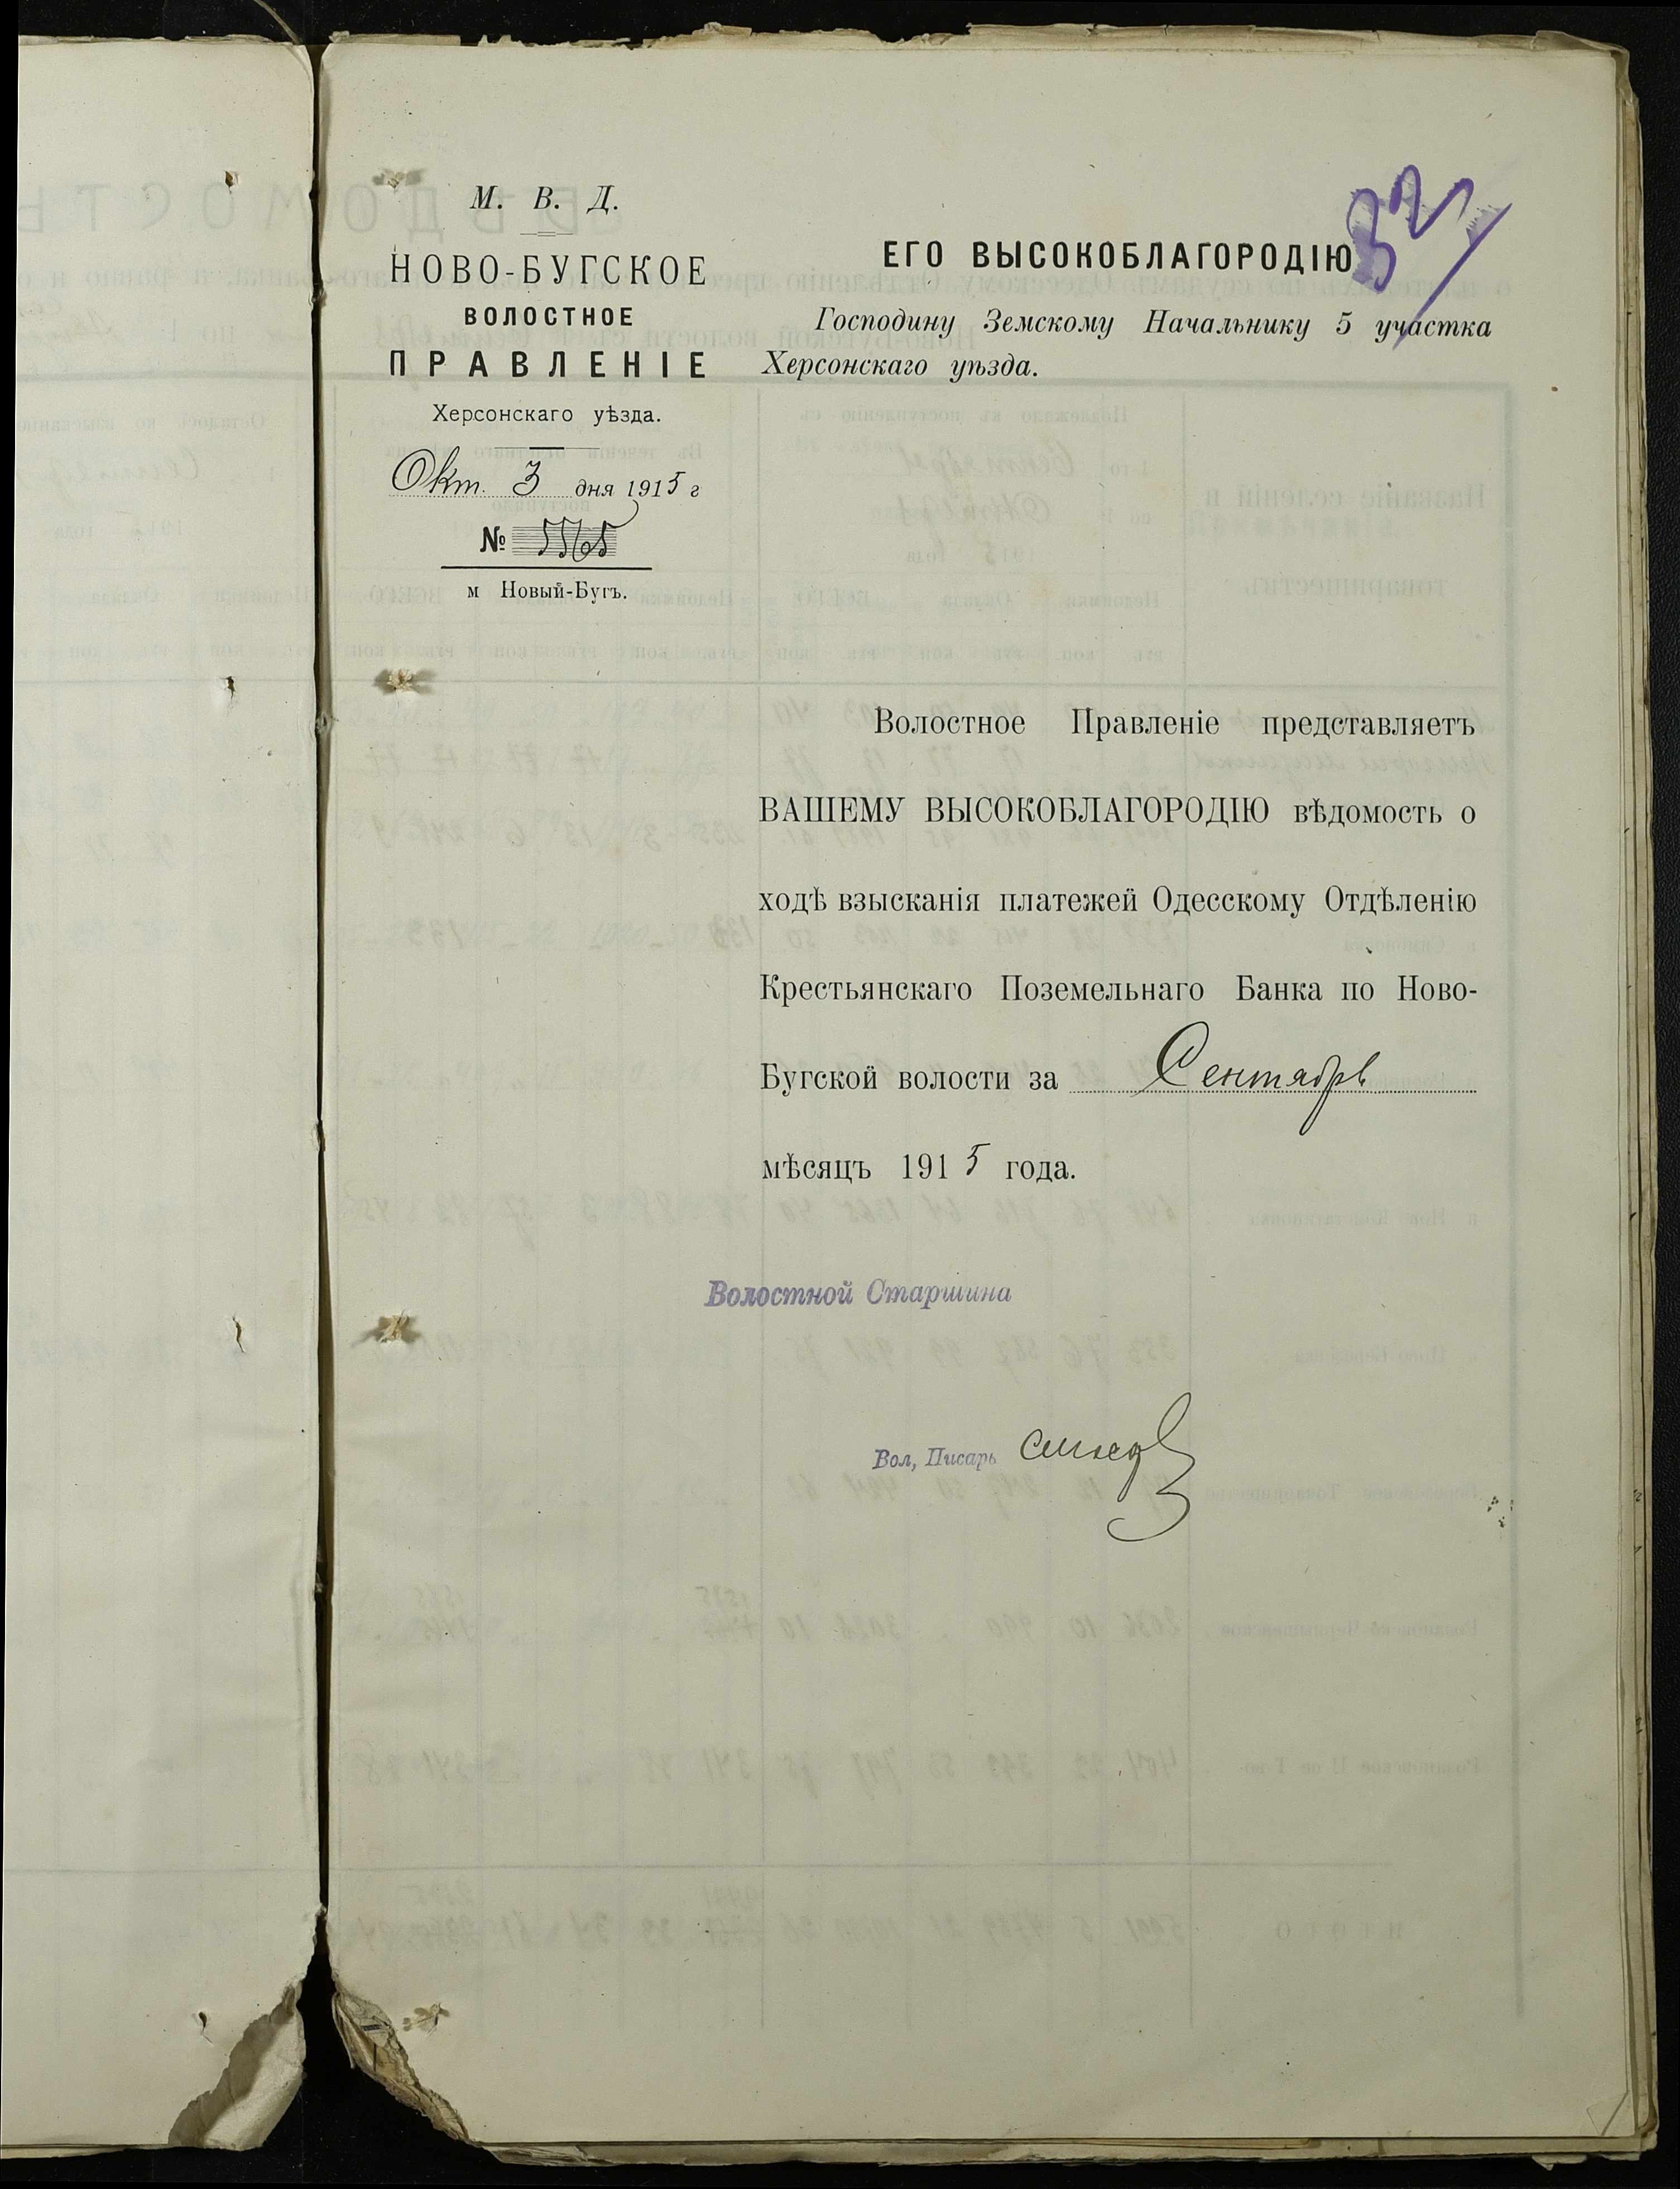 М. В. Д.
НОВО-БУГСКОЕ
ВОЛОСТНОЕ
ПРАВЛЕНІЕ
Херсонскаго уѣзда.
Окт. 3 дня 1915 г
№ 5565
м Новый-Бугъ.
32
ЕГО ВЫСОКОБЛАГОРОДІЮ
Господину Земскому Начальнику 5 участка
Херсонскаго уѣзда.
Волостное Правленіе представляетъ
ВАШЕМУ ВЫСОКОБЛАГОРОДІЮ вѣдомость о
ходѣ взысканія платежей Одесскому Отдѣленію
Крестьянскаго Поземельнаго Банка по Ново-
Бугской волости за Сентябрь
мѣсяцъ 1915 года.
Волостной Старшина
Вол, Писарь